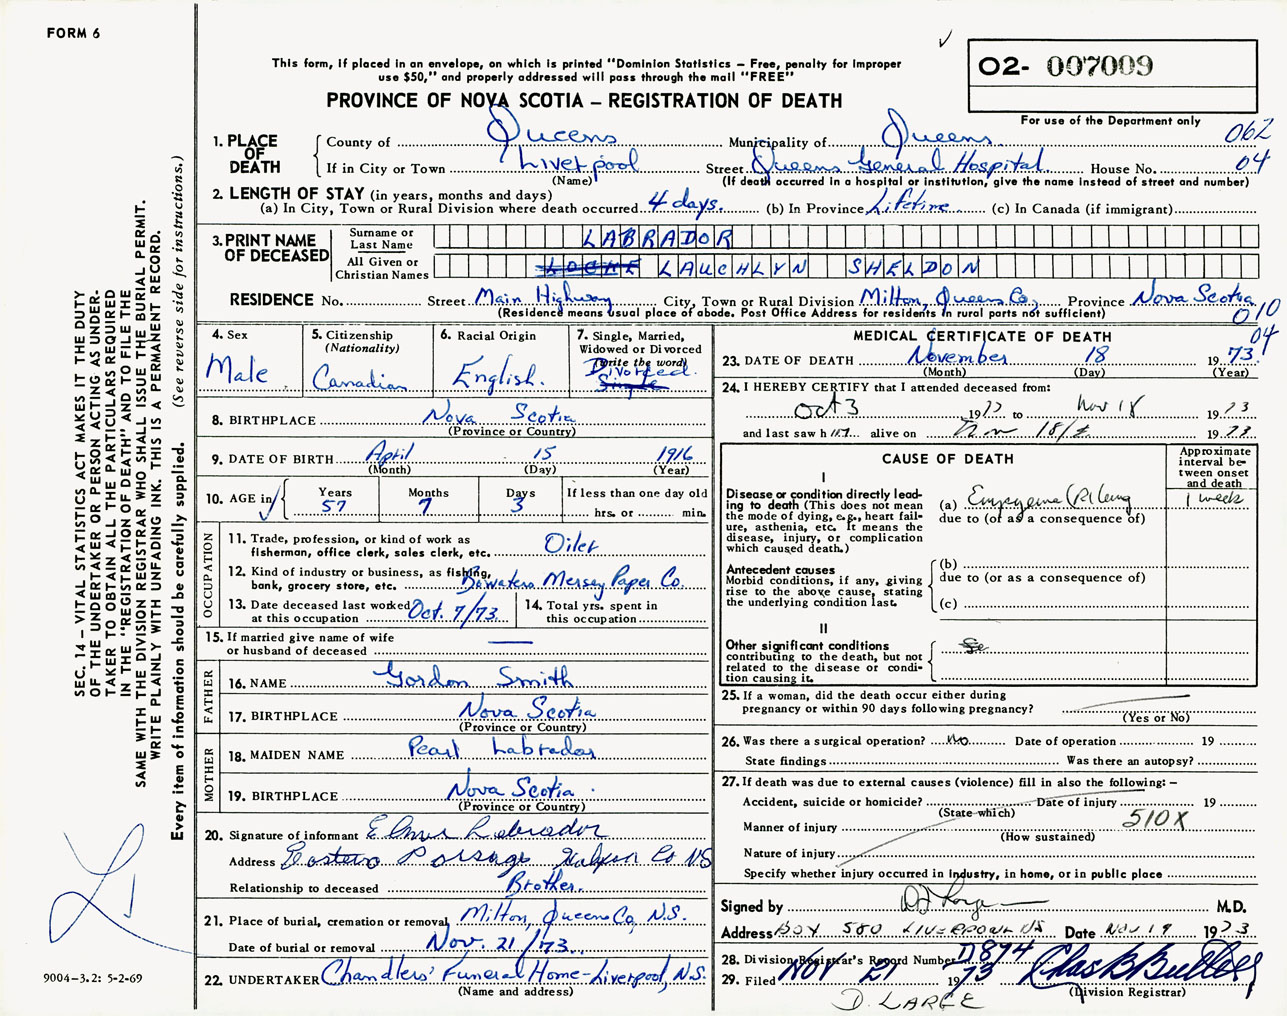 FORM 6
This form, if placed in an envelope, on which is printed "Dominion Statistics – Free, penalty for improper
use $50," and properly addressed will pass through the mail "FREE"
PROVINCE OF NOVA SCOTIA – REGISTRATION OF DEATH
02- 007009
For use of the Department only
062
04
1. PLACE OF DEATH
County of Queens Municipality of Queens
If in City or Town Liverpool Street Queens General Hospital House No.
(Name) (If death occurred in a hospital or institution, give the name instead of street and number)
2. LENGTH OF STAY (in years, months and days)
(a) In City, Town or Rural Division where death occurred 4 days. (b) In Province Lifetime (c) In Canada (if immigrant)
3. PRINT NAME OF DECEASED
Surname or Last Name LABRADOR
All Given or Christian Names LAUCHLYN SHELDON
RESIDENCE No. Street Main Highway City, Town or Rural Division Milton, Queens Co., Province Nova Scotia
(Residence means usual place of abode. Post Office Address for residents in rural parts not sufficient)
010
04
4. Sex
Male
5. Citizenship
(Nationality)
Canadian
6. Racial Origin
English.
7. Single, Married,
Widowed or Divorced
(write the word)
Divorced
Single
8. BIRTHPLACE Nova Scotia
(Province or Country)
9. DATE OF BIRTH April 15 1916
(Month) (Day) (Year)
10. AGE in
Years Months Days If less than one day old
57 7 3 hrs. or min.
OCCUPATION
11. Trade, profession, or kind of work as
fisherman, office clerk, sales clerk, etc. Oiler
12. Kind of industry or business, as fishing,
bank, grocery store, etc. Bowaters Mersey Paper Co.
13. Date deceased last worked
at this occupation Oct. 7/73.
14. Total yrs. spent in
this occupation
15. If married give name of wife
or husband of deceased
FATHER
16. NAME Gordon Smith
17. BIRTHPLACE Nova Scotia
(Province or Country)
MOTHER
18. MAIDEN NAME Pearl Labrador
19. BIRTHPLACE Nova Scotia
(Province or Country)
20. Signature of informant Elmer Labrador
Address Eastern Passage Halifax Co NS
Relationship to deceased Brother.
21. Place of burial, cremation or removal Milton, Queens Co, N.S.
Date of burial or removal Nov. 21/73.
22. UNDERTAKER Chandlers' Funeral Home – Liverpool, N.S.
(Name and address)
MEDICAL CERTIFICATE OF DEATH
23. DATE OF DEATH November 18 1973.
(Month) (Day) (Year)
24. I HEREBY CERTIFY that I attended deceased from:
Oct 3 1973 to Nov 18 1973
and last saw him alive on Nov 18/ 1973
CAUSE OF DEATH
Approximate
interval be-
tween onset
and death
I
Disease or condition directly lead-
ing to death (This does not mean
the mode of dying, e.g., heart fail-
ure, asthenia, etc. It means the
disease, injury, or complication
which caused death.)
(a) Empyema (R) lung 1 week
due to (or as a consequence of)
Antecedent causes
Morbid conditions, if any, giving
rise to the above cause, stating
the underlying condition last.
(b)
due to (or as a consequence of)
(c)
II
Other significant conditions
contributing to the death, but not
related to the disease or condi-
tion causing it.
25. If a woman, did the death occur either during
pregnancy or within 90 days following pregnancy?
(Yes or No)
26. Was there a surgical operation? No Date of operation 19
State findings Was there an autopsy?
27. If death was due to external causes (violence) fill in also the following: –
Accident, suicide or homicide? Date of injury 19
(State which)
Manner of injury 510X
(How sustained)
Nature of injury
Specify whether injury occurred in industry, in home, or in public place
Signed by M.D.
Address BOX 580 LIVERPOOL NS Date NOV 19 1973
28. Division Registrar's Record Number D874
29. Filed NOV 21 1973
(Division Registrar)
D. LARGE
SEC. 14 – VITAL STATISTICS ACT MAKES IT THE DUTY
OF THE UNDERTAKER OR PERSON ACTING AS UNDER-
TAKER TO OBTAIN ALL THE PARTICULARS REQUIRED
IN THE "REGISTRATION OF DEATH" AND TO FILE THE
SAME WITH THE DIVISION REGISTRAR WHO SHALL ISSUE THE BURIAL PERMIT.
WRITE PLAINLY WITH UNFADING INK. THIS IS A PERMANENT RECORD.
Every item of information should be carefully supplied. (See reverse side for instructions.)
9004–3.2: 5-2-69